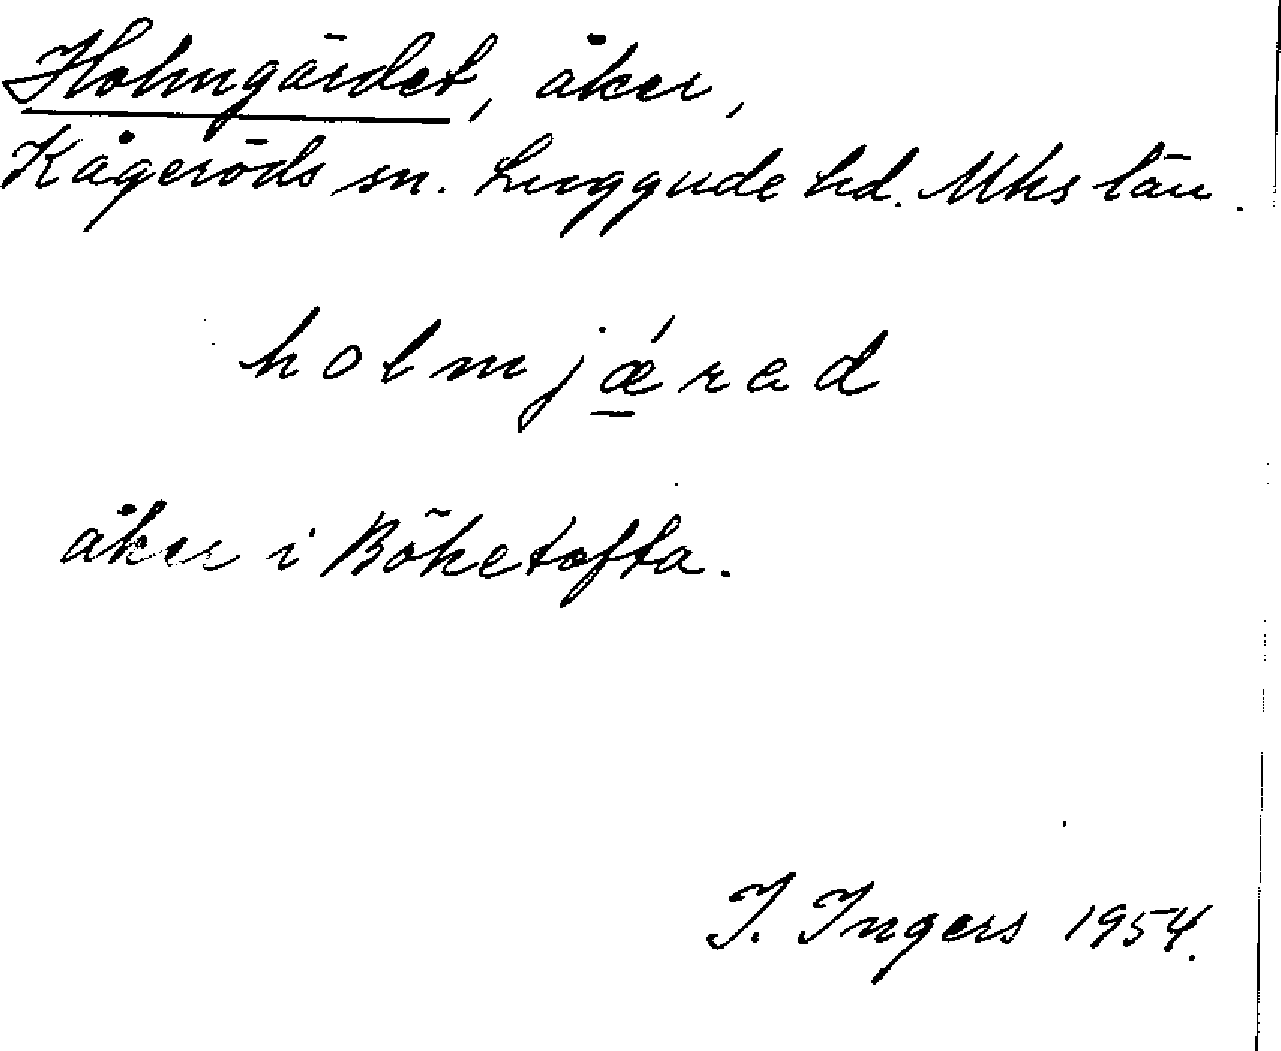 Holmgärdet, åker,
Kågeröds sn. Luggude hd. Mhs län.
holmjǽ̠rad
åker i Böketofta.
I. Ingers 1954.